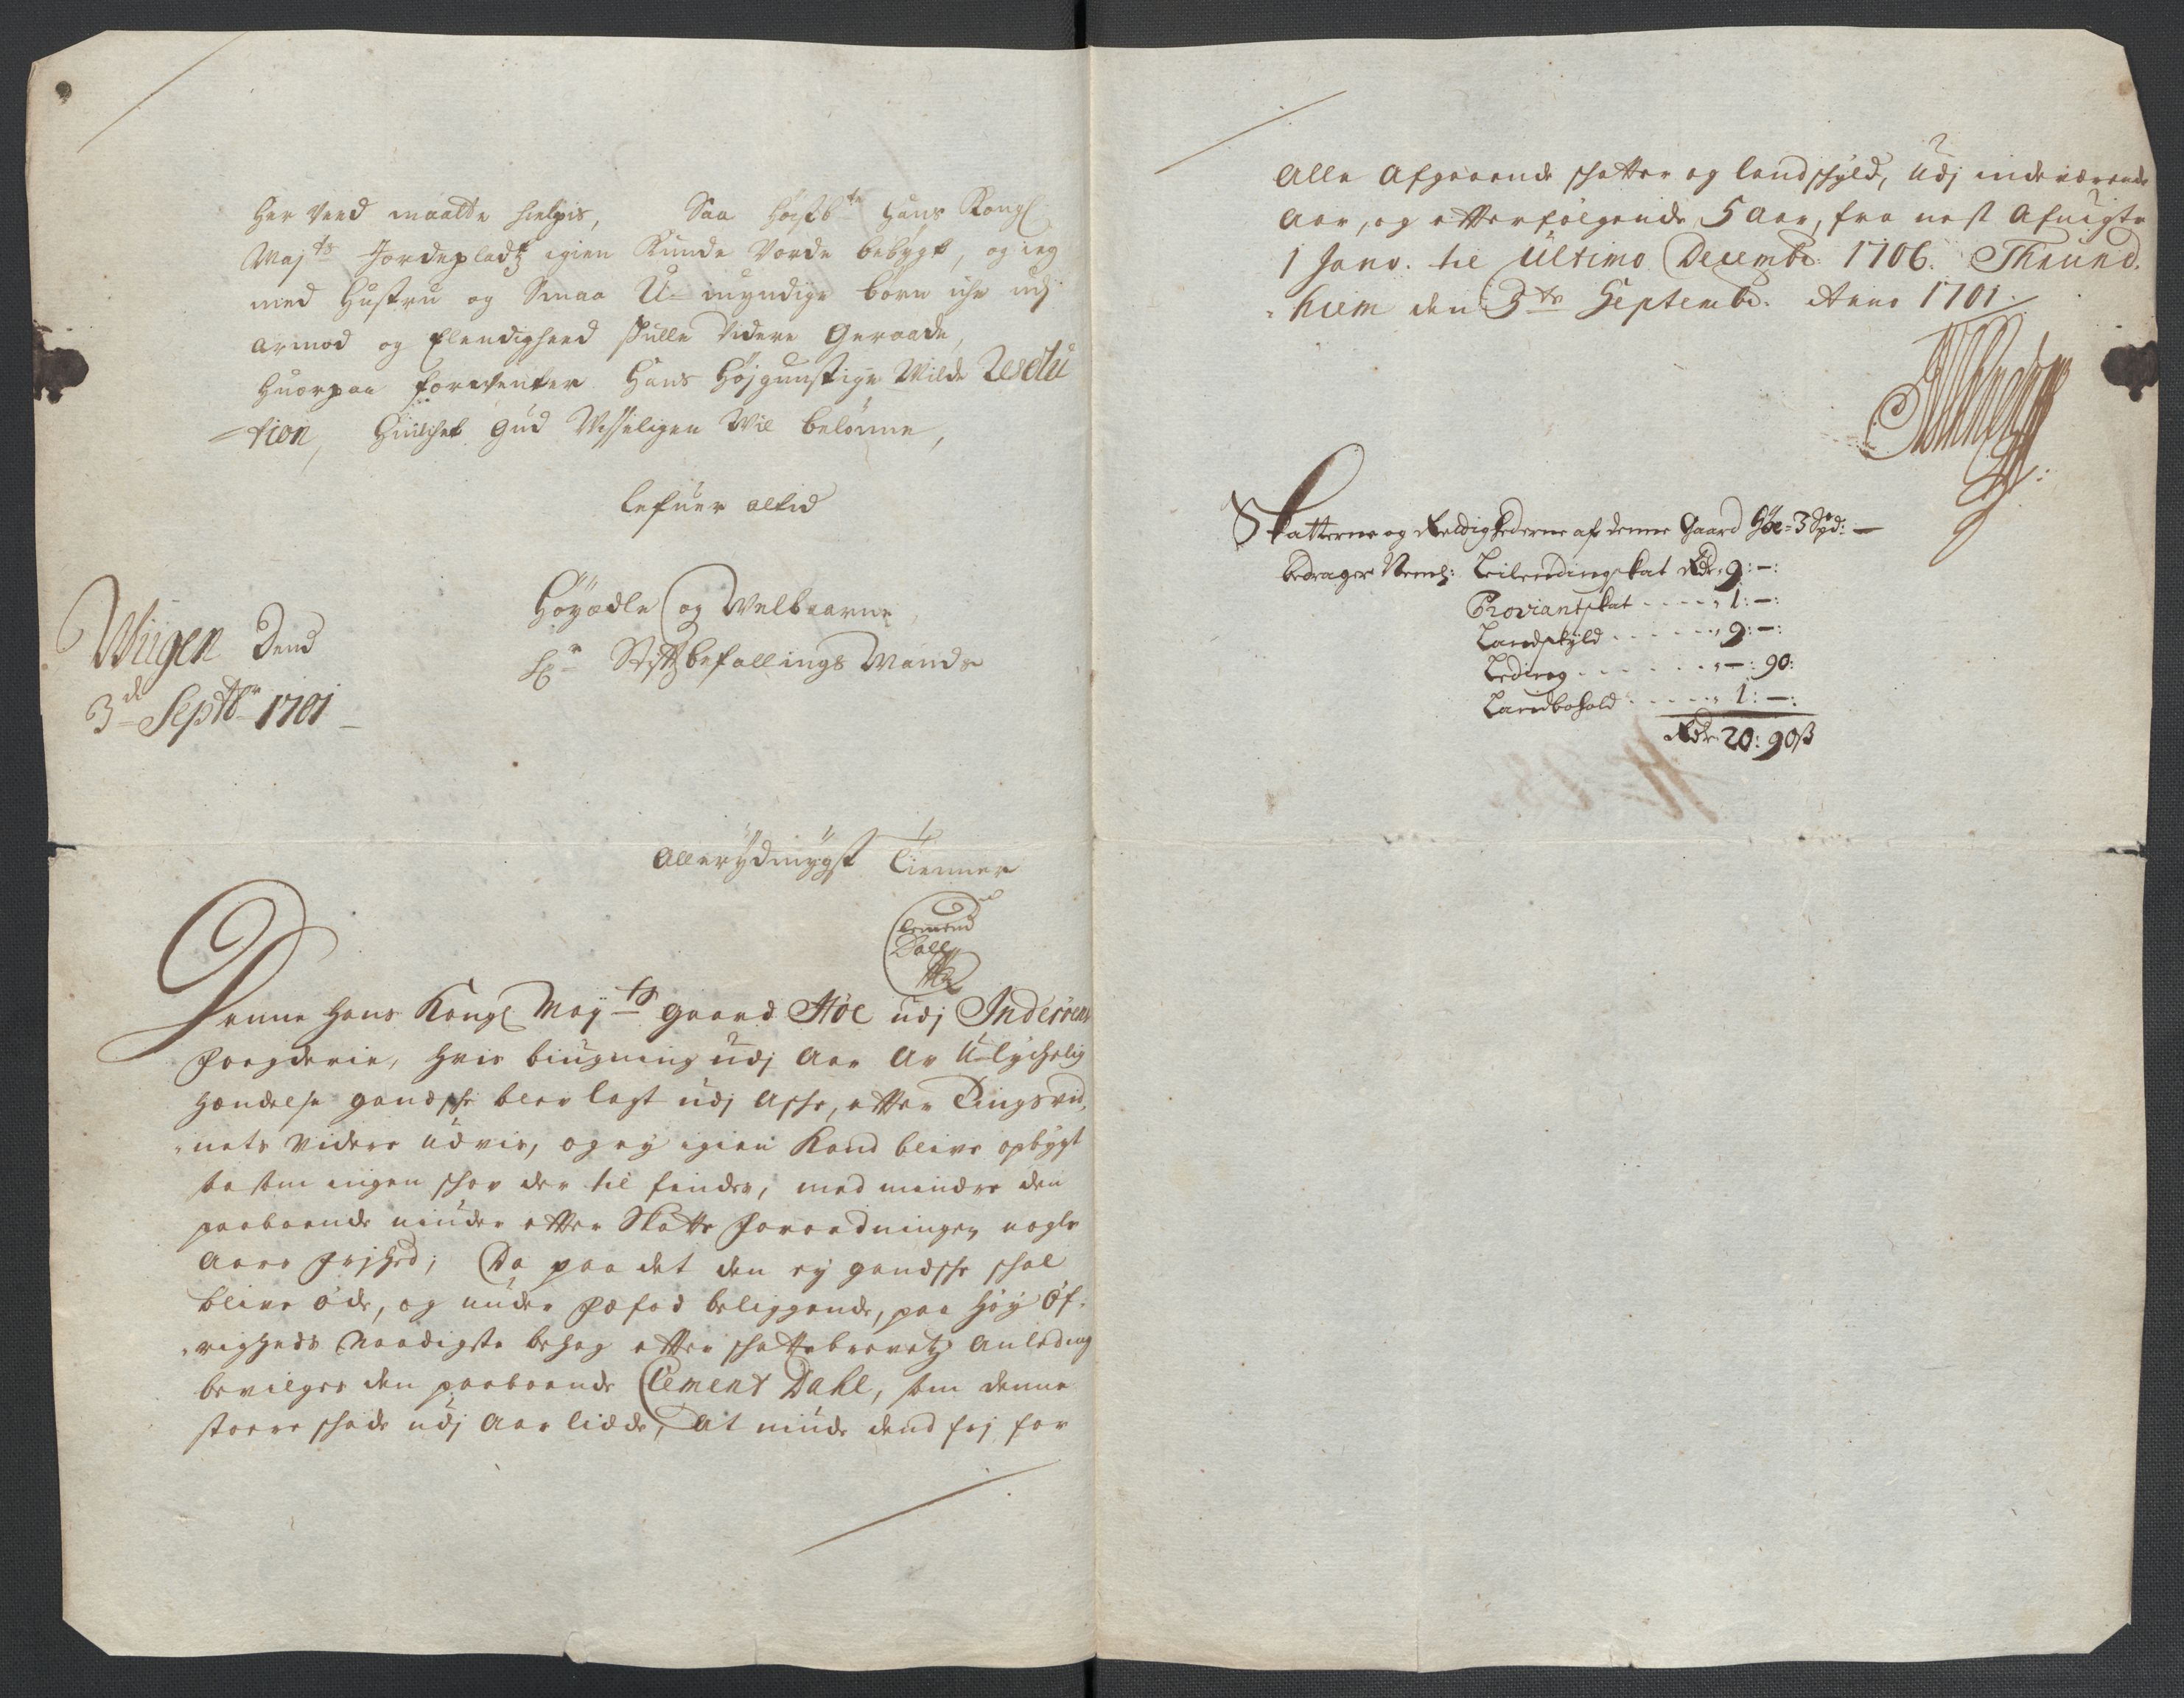 her Veed maatte hielpis, Saa Høistb.te Hans Kongl
Maj.ts Jordepladtz igien Kunde Vorde bebygt, og ieg
med Hustru og Smaa U-myndige børn iche udj
armod og Elendigheed skulle Videre Geraade,
huorpaa forventer Hans Højgunstige Milde Resolu
-tion, huilchet Gud Visseligen Vil belønne,
lefuer altid
Høyædle og Velbaarne
Hr Stiftbefallings Mands
Wiigen Dend
3de Septbr 1701
Allerydmygst Tienner
Clemend
Dall
Denne Hans Kongl May.ts gaard Høe udj Inderøens
Fogderie, hvis biugning udj Aar Av Ulychelig
hændelse gandsche blev lagt udj Asche, effter Tingsvid,
"nets Videre udvis, og ey igien Kand blive opbygt
saasom ingen schov der til findes, med mindre den
paaboende niuder effter Skatte Forordningen nogle
Aars frjhed; Da paa det den ey gandsche schal
blive øde, og under Fæfod beliggende, paa høy Øf:
"righeds Naadigste behag effter schattebrevetz Anledning
bevilges den paaboende Clement Dahl, som denne
stoere schade udj Aar lidde, At niude dend frj for
Alle Afgaaende schatter og landschyld, udj indeværende
Aar, og effterfølgende 5 Aar, fra nest Afvigte
1 Janv. til Ultimo Decembr: 1706. Thrund.
"hiem den 3te Septembr. Anno 1701.
Skatterne og Rettighederne af denne Gaard Høe - 3 Spd: —
bedrager Neml: Leilendingskat Rdr 9:—:
Proviantskat - - - - 1:—:
Landskyld - - - - - 9:—:
Leding - - - - - - —: 90:
Landbohold - - - - 1:—:
Rdr 20: 90 ß